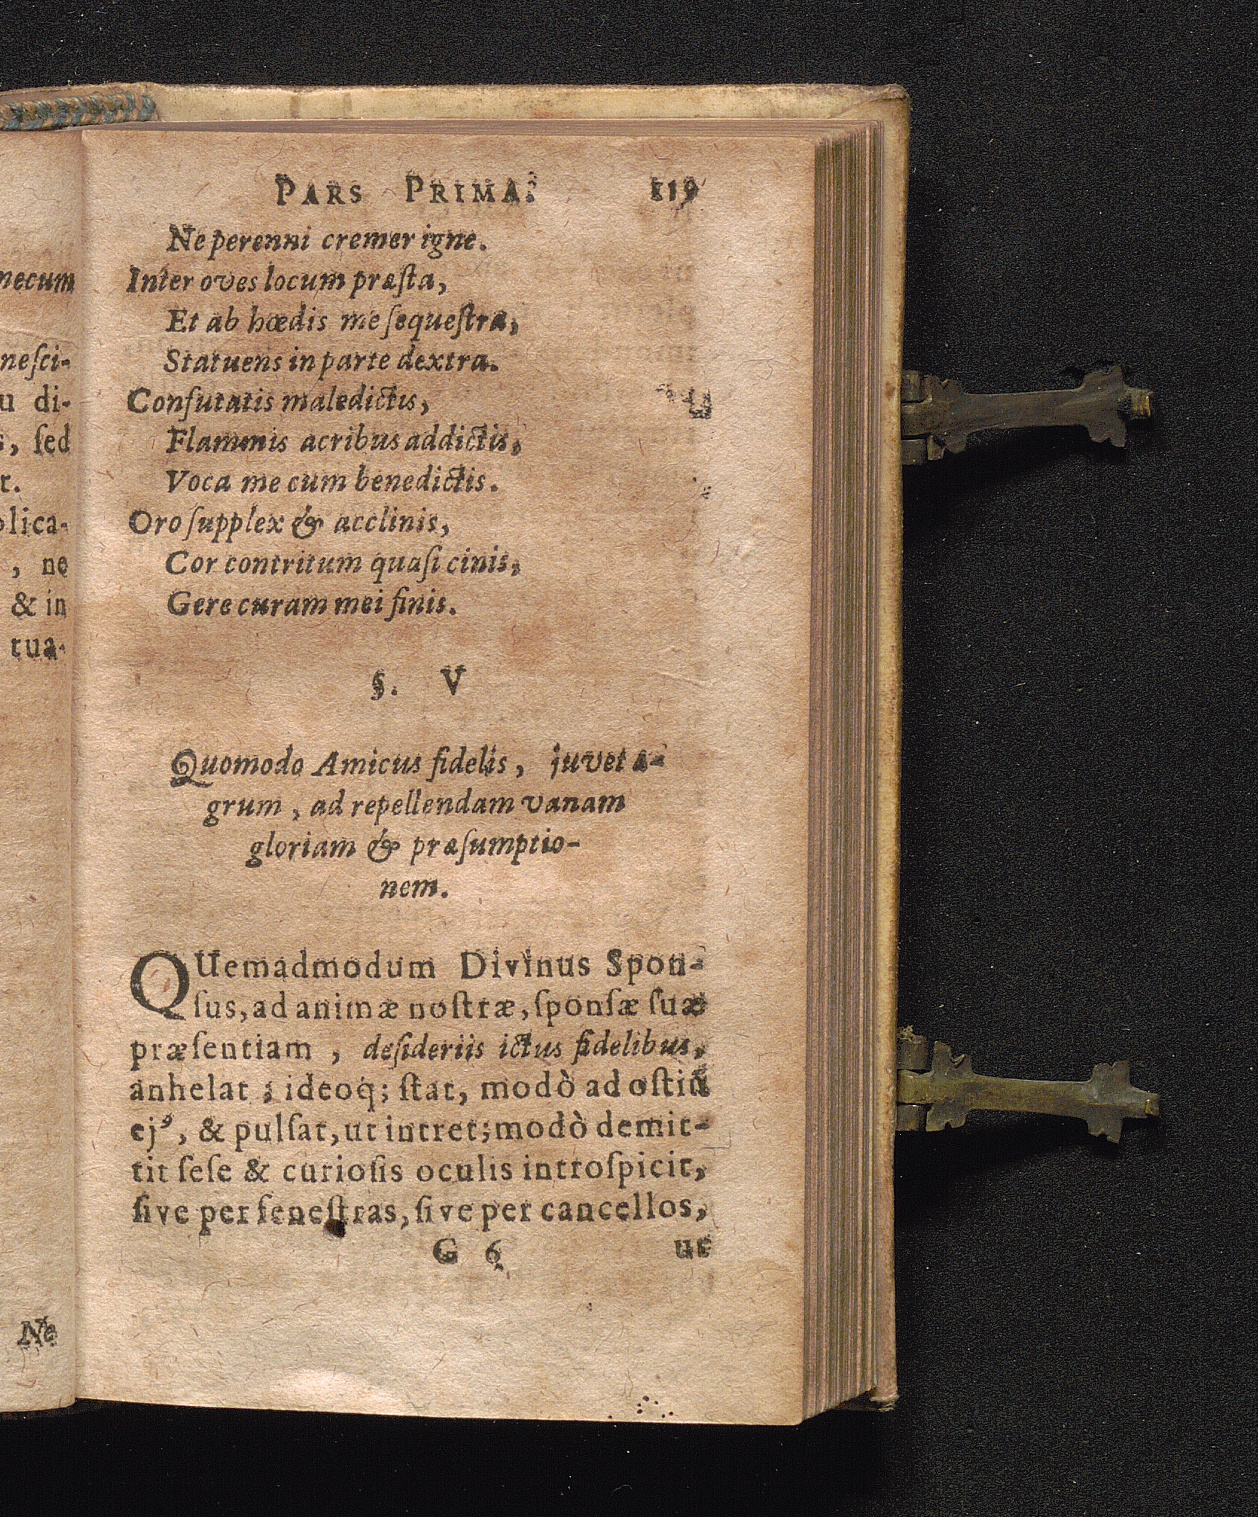 necum
nesci-
u di-
s, sed
r.
olica-
, ne
& in
tua-
Ne
PARS PRIMA. 119
Ne perenni cremer igne.
Inter oves locum præſta,
Et ab hœdis me ſequeſtra,
Statuens in parte dextra.
Confutatis maledictis,
Flammis acribus addictis,
Voca me cum benedictis.
Oro ſupplex & acclinis,
Cor contritum quaſi cinis,
Gere curam mei finis.
§. V
Quomodo Amicus fidelis, juvet æ-
grum, ad repellendam vanam
gloriam & præſumptio-
nem.
QUemadmodum Divinus Spon-
ſus, ad animæ noſtræ, ſponſæ ſuæ
præſentiam, deſideriis ictus fidelibus,
anhelat; ideoq; ſtat, modò ad oſtiū
ejꝰ, & pulſat, ut intret; modò demit-
tit ſeſe & curioſis oculis introſpicit,
ſive per feneſtras, ſive per cancellos,
G 6 ut